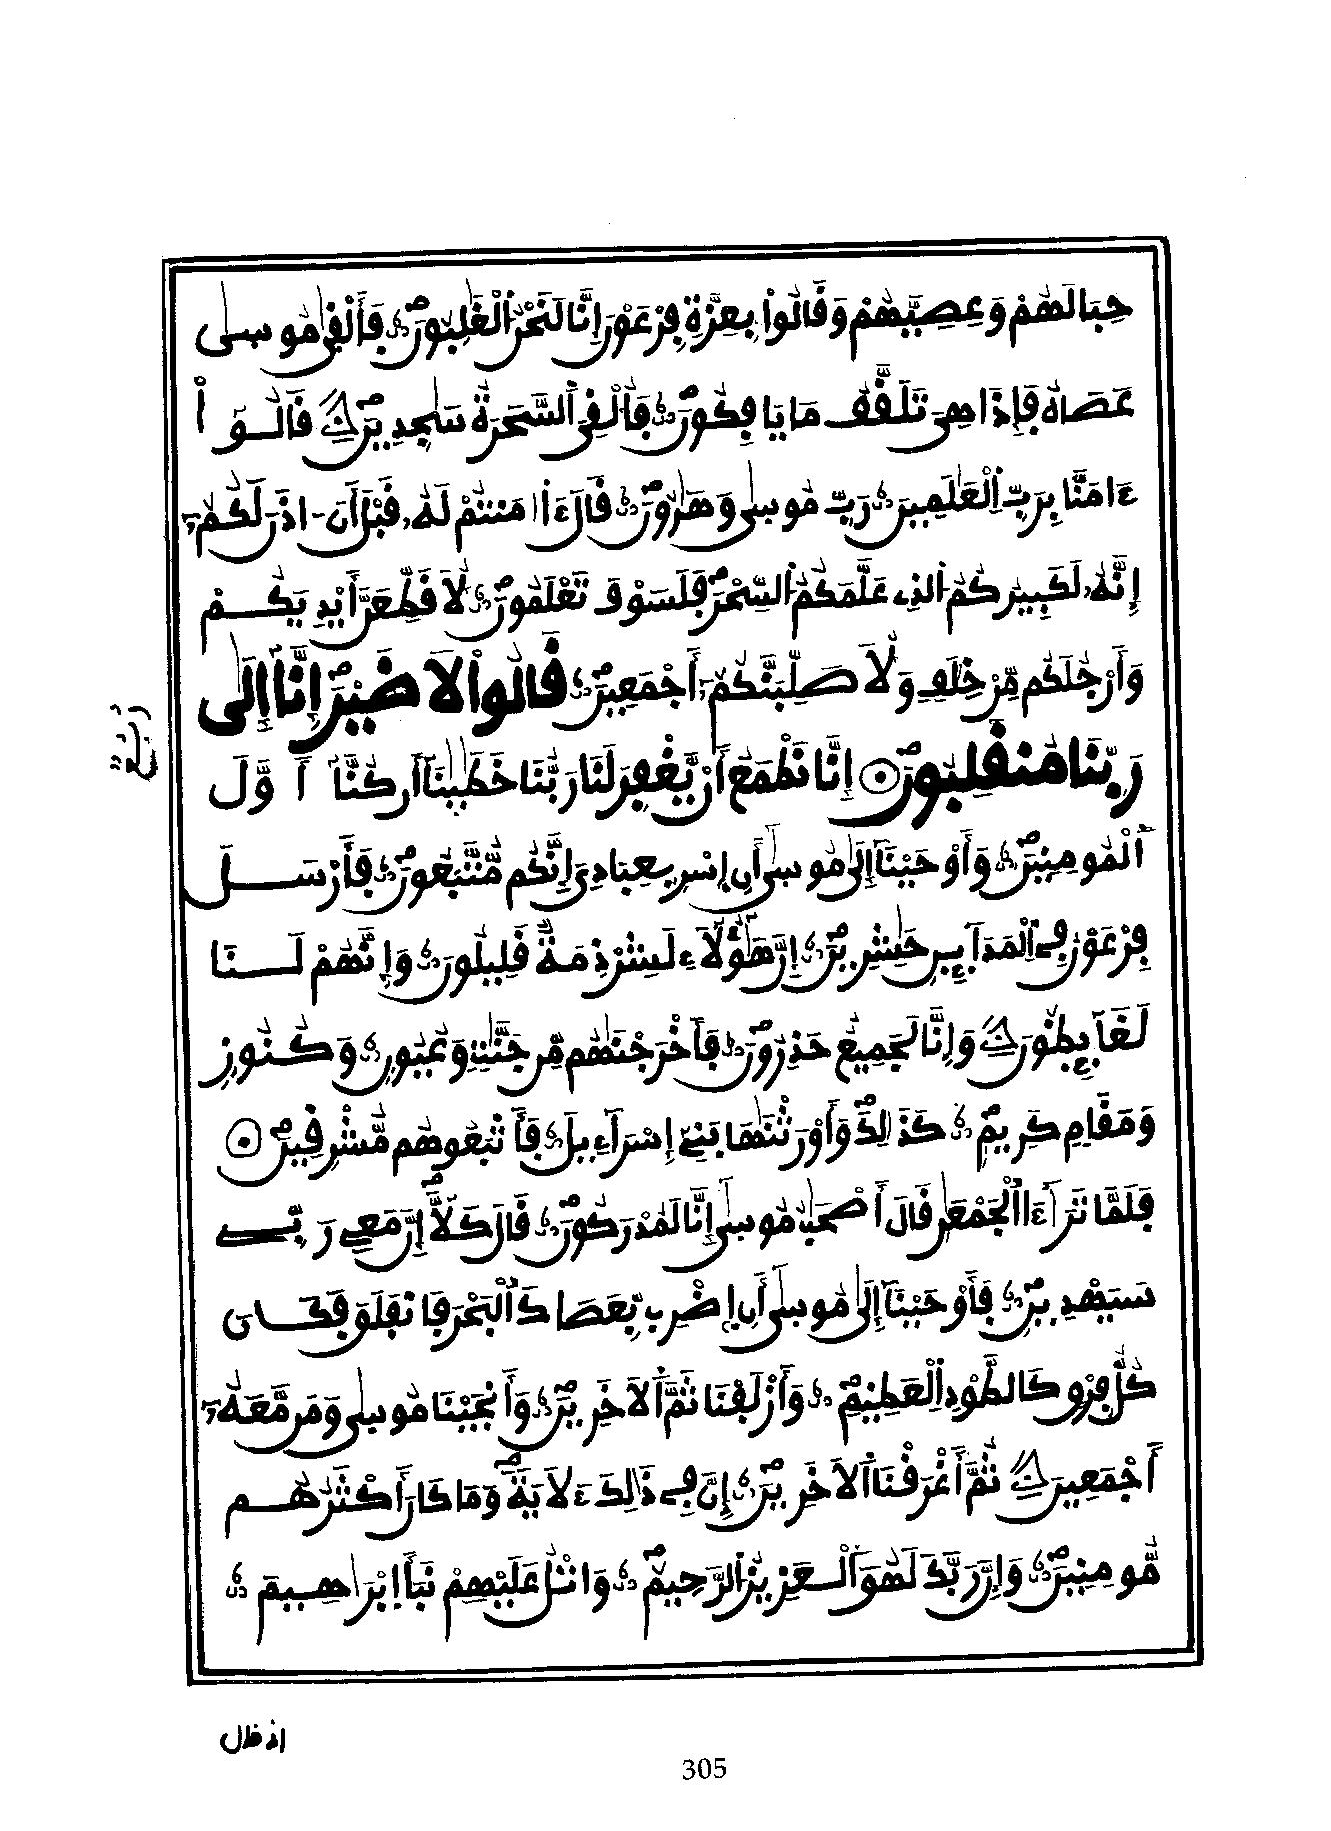 حِبَالَهُمْ وَعِصِيَّهُمْ وَقَالُواْ بِعِزَّةِ فِرْعَوْنَ إِنَّا لَنَحْنُ اَ۬لْغَٰلِبُونَ فَأَلْقَىٰ مُوسَىٰ
عَصَاهُ فَإِذَا هِىَ تَلَقَّفُ مَا يَافِكُونَ فَأُلْقِىَ اَ۬لسَّحَرَةُ سَٰجِدِينَ قَالُوٓاْ
ءَامَنَّا بِرَبِّ اِ۬لْعَٰلَمِينَ رَبِّ مُوسَىٰ وَهَٰرُونَ قَالَ ءَا۬مَنتُمْ لَهُۥ قَبْلَ أَنَ ـاذَنَ لَكُمُۥٓ
إِنَّهُۥ لَكَبِيرُكُمُ اُ۬لذِى عَلَّمَكُمُ اُ۬لسِّحْرَ فَلَسَوْفَ تَعْلَمُونَ لَأُقَطِّعَنَّ أَيْدِيَكُمْ
وَأَرْجُلَكُم مِّنْ خِلَٰفٍ وَلَأُصَلِّبَنَّكُمُۥٓ أَجْمَعِينَ قَالُواْ لَا ضَيْرَ إِنَّآ إِلَىٰ
رَبِّنَا مُنقَلِبُونَ إِنَّا نَطْمَعُ أَنْ يَّغْفِرَ لَنَا رَبُّنَا خَطَٰيَٰنَآ أَن كُنَّآ أَوَّلَ
اَ۬لْمُومِنِينَ وَأَوْحَيْنَآ إِلَىٰ مُوسَىٰٓ أَنِ اِسْرِ بِعِبَادِىَ إِنَّكُم مُّتَّبَعُونَ فَأَرْسَلَ
فِرْعَوْنُ فِى اِ۬لْمَدَآئِنِ حَٰشِرِينَ إِنَّ هَٰٓؤُلَآءِ لَشِرْذِمَةٌ قَلِيلُونَ وَإِنَّهُمْ لَنَا
لَغَآئِظُونَ وَإِنَّا لَجَمِيعٌ حَذِرُونَ فَأَخْرَجْنَٰهُم مِّن جَنَّٰتٍ وَعُيُونٍ وَكُنُوزٍ
وَمَقَامٍ كَرِيمٍ كَذَٰلِكَ وَأَوْرَثْنَٰهَا بَنِىٓ إِسْرَآءِيلَ فَأَتْبَعُوهُم مُّشْرِقِينَ
فَلَمَّا تَرَٰٓءَا اَ۬لْجَمْعَٰنِ قَالَ أَصْحَٰبُ مُوسَىٰٓ إِنَّا لَمُدْرَكُونَ قَالَ كَلَّآ إِنَّ مَعِى رَبِّى
سَيَهْدِينِ فَأَوْحَيْنَآ إِلَىٰ مُوسَىٰٓ أَنِ اِضْرِب بِّعَصَاكَ اَ۬لْبَحْرَ فَانفَلَقَ فَكَانَ
كُلُّ فِرْقٍ كَالطَّوْدِ اِ۬لْعَظِيمِ وَأَزْلَفْنَا ثَمَّ اَ۬لَاخَرِينَ وَأَنجَيْنَا مُوسَىٰ وَمَن مَّعَهُۥٓ
أَجْمَعِينَ ثُمَّ أَغْرَقْنَا اَ۬لَاخَرِينَ إِنَّ فِى ذَٰلِكَ ءَلَايَةً وَمَا كَانَ أَكْثَرُهُم
مُّومِنِينَ وَإِنَّ رَبَّكَ لَهُوَ اَ۬لْعَزِيزُ اُ۬لرَّحِيمُ وَاتْلُ عَلَيْهِمْ نَبَأَ إِبْرَٰهِيمَ
رُبُع
اذ قال
305